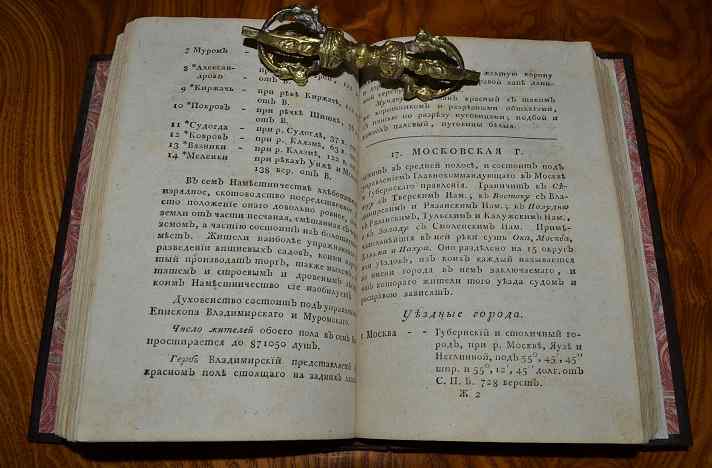 7 Муромъ -
8 *Алексан-
дровъ - при
отъ В.
9 *Киржачь - при рѣкѣ Киржачѣ,
отъ В.
10 *Покровъ - при рѣчкѣ Шишкѣ,
отъ В.
11 *Судогда - при р. Судогдѣ, 37 в.
12 *Ковровъ - при р. Клязмѣ, 63 в.
13 *Вязники - при р. Клязмѣ, 122 в.
14 *Меленки - при рѣкахъ Унжѣ и
138 вер. отъ В.
Въ семъ Намѣстничествѣ хлѣбопаш
изрядное, скотоводство посредственное
сто положеніе онаго довольно ровное,
земли отъ части песчаная, смѣшанная съ
земомъ, а частію состоитъ изъ болот
мѣстъ. Жители наиболѣе упражняют
разведеніи вишневыхъ садовъ, коими
тый производятъ торгъ, также мыло
ташемъ и строевымъ и дровенымъ
коимъ Намѣстничество сіе изобилу
Духовенство состоитъ подъ управл
Епископа Владимирскаго и Муромскаго.
Число жителей обоего пола въ семъ
простирается до 871050 душъ.
Гербъ Владимирскій представляетъ
красномъ полѣ стоящаго на заднихъ
желтую корону
правой лапѣ
Мундиръ красный съ таким
воротникомъ и разрезными обшлагами,
по разрѣзу пуговицами; подбой и
камзолъ палевый, пуговицы бѣлыя.
17. МОСКОВСКАЯ Г.
въ средней полосѣ, и состоитъ подъ
управленіемъ Главнокомандующаго въ Москвѣ
и Губернскаго правленія. Граничитъ къ Сѣ-
веру съ Тверскимъ Нам.; къ Востоку съ Вла-
димирскимъ и Рязанскимъ Нам.; къ Полудню
съ Рязанскимъ, Тульскимъ и Калужскимъ Нам.,
къ Западу съ Смоленскимъ Нам. Примѣ-
въ ней рѣки суть Ока, Москва,
Клязма и Пахра. Онѣ раздѣлено на 15 округъ
уѣздовъ, изъ коихъ каждый называется
по имени города въ немъ заключаемаго, и
отъ котораго жители того уѣзда судомъ и
расправою зависятъ.
Уѣздные города.
1 Москва - - Губернскій и столичный го-
родъ, при р. Москвѣ, Яузѣ и
Неглинной, подъ 55°, 45', 45''
шир. и 55°, 12', 45'' долг. отъ
С. П. Б. 728 верстъ.
Ж 2